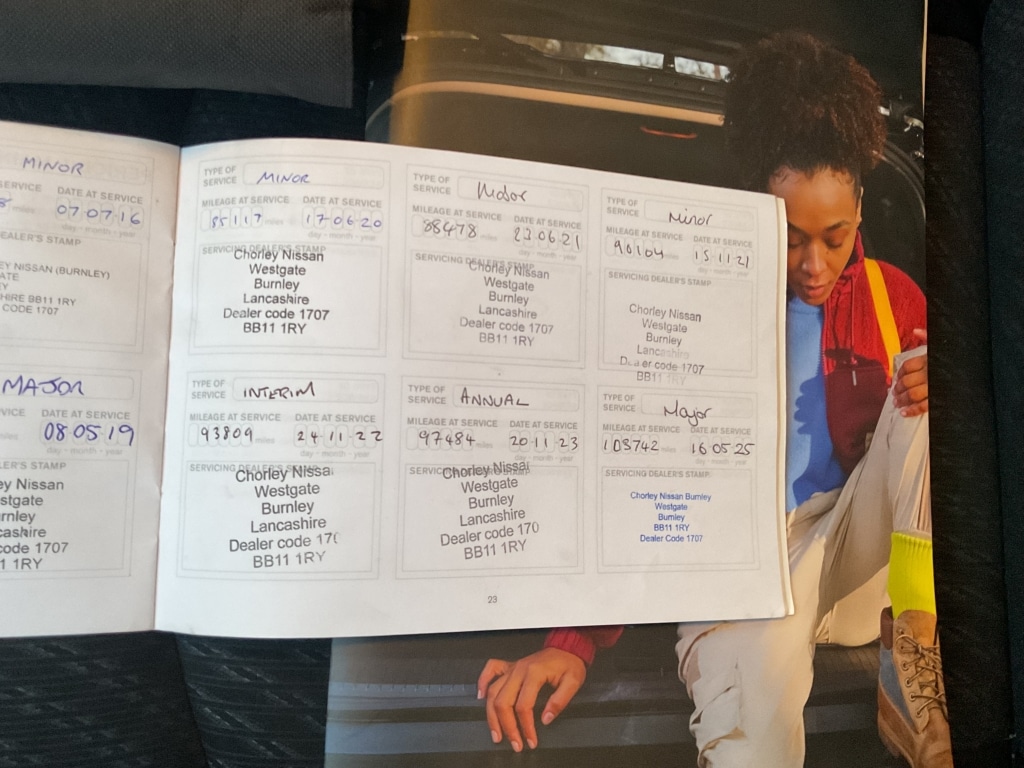 MINOR
SERVICE DATE AT SERVICE
8 miles 07 07 16
day - month - year
DEALER'S STAMP
EY NISSAN (BURNLEY)
ATE
EY
SHIRE BB11 1RY
CODE 1707
MAJOR
SERVICE DATE AT SERVICE
miles 08 05 19
day - month - year
DEALER'S STAMP
ey Nissan
stgate
urnley
cashire
code 1707
1 1RY
TYPE OF SERVICE MINOR
MILEAGE AT SERVICE DATE AT SERVICE
85117 miles 17 06 20
day - month - year
SERVICING DEALER'S STAMP
Chorley Nissan
Westgate
Burnley
Lancashire
Dealer code 1707
BB11 1RY
TYPE OF SERVICE Major
MILEAGE AT SERVICE DATE AT SERVICE
88478 miles 23 06 21
day - month - year
SERVICING DEALER'S STAMP
Chorley Nissan
Westgate
Burnley
Lancashire
Dealer code 1707
BB11 1RY
TYPE OF SERVICE Minor
MILEAGE AT SERVICE DATE AT SERVICE
90104 miles 15 11 21
day - month - year
SERVICING DEALER'S STAMP
Chorley Nissan
Westgate
Burnley
Lancashire
Dealer code 1707
BB11 1RY
TYPE OF SERVICE INTERIM
MILEAGE AT SERVICE DATE AT SERVICE
93809 miles 24 11 22
day - month - year
SERVICING DEALER'S STAMP
Chorley Nissa
Westgate
Burnley
Lancashire
Dealer code 170
BB11 1RY
TYPE OF SERVICE ANNUAL
MILEAGE AT SERVICE DATE AT SERVICE
97484 miles 20 11 23
day - month - year
SERVICING DEALER'S STAMP
Chorley Nissa
Westgate
Burnley
Lancashire
Dealer code 170
BB11 1RY
TYPE OF SERVICE Major
MILEAGE AT SERVICE DATE AT SERVICE
103742 miles 16 05 25
day - month - year
SERVICING DEALER'S STAMP
Chorley Nissan Burnley
Westgate
Burnley
BB11 1RY
Dealer Code 1707
23